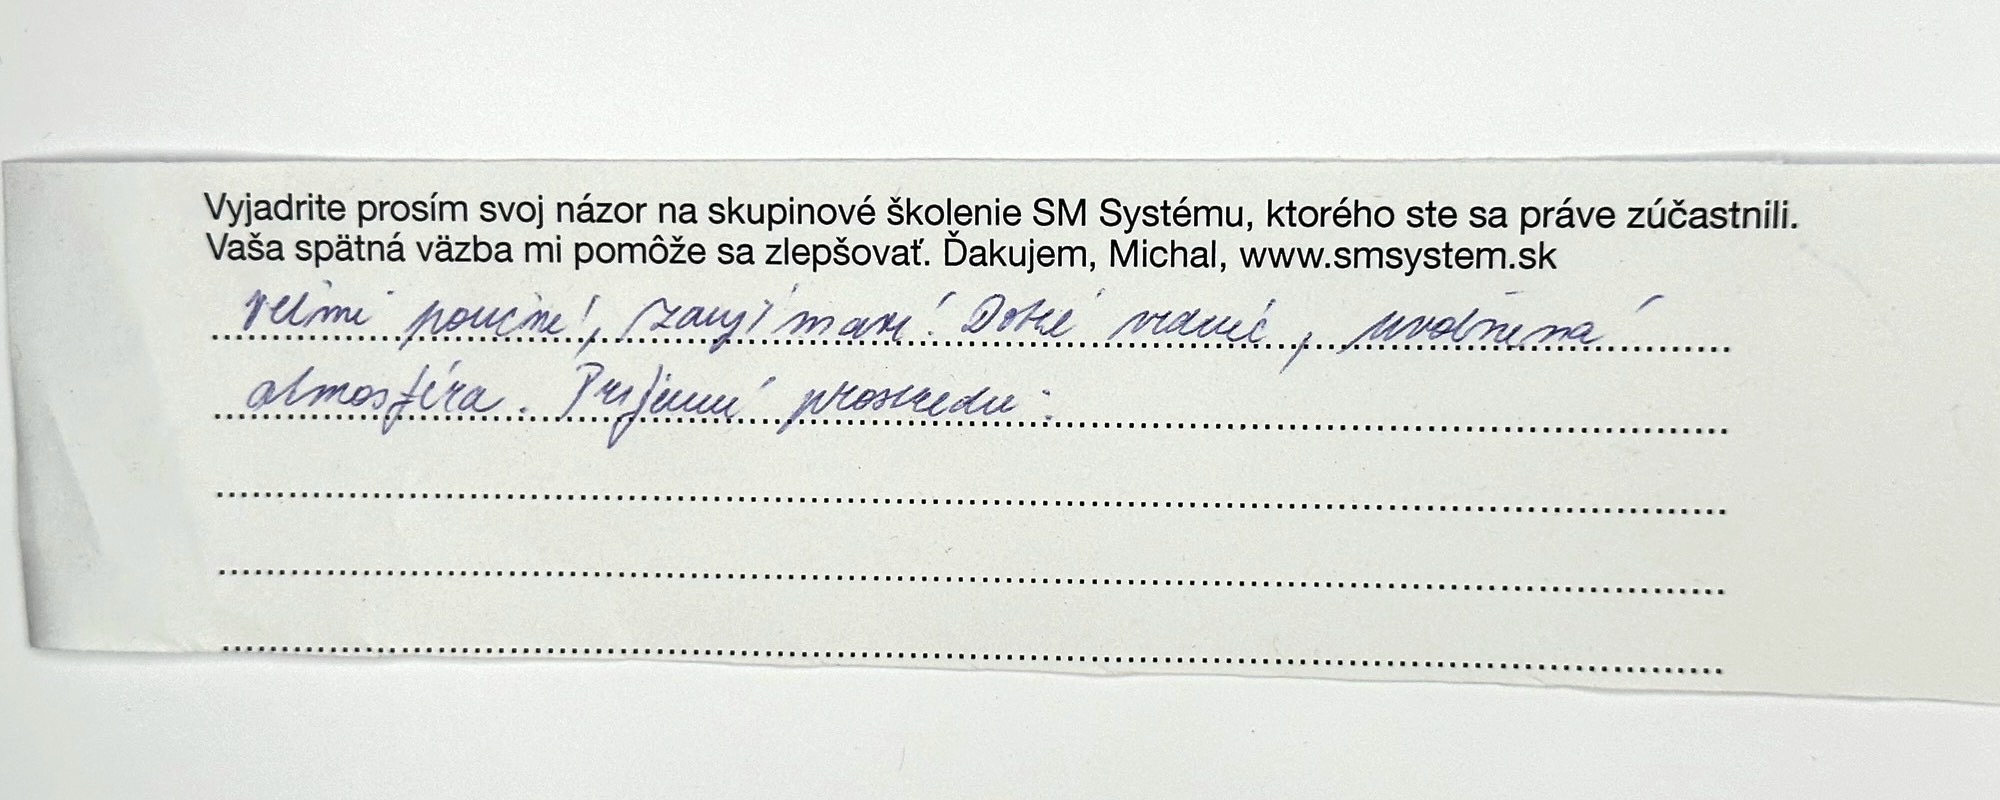 Vyjadrite prosím svoj názor na skupinové školenie SM Systému, ktorého ste sa práve zúčastnili.
Vaša spätná väzba mi pomôže sa zlepšovať. Ďakujem, Michal, www.smsystem.sk
Veľmi poučné, zaujímavé! Dobré vedenie, uvoľnená
atmosféra. Príjemné prostredie.